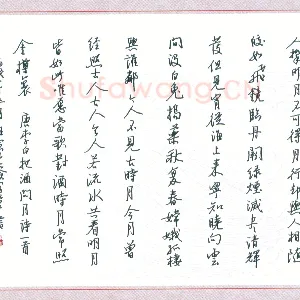 人攀明月不可得月行却與人相隨
皎如飛鏡臨丹闕綠煙滅盡清輝
發但見宵從海上來寧知曉向雲
間沒白兔搗藥秋復春嫦娥孤棲
與誰鄰今人不見古時月今月曾
經照古人古人今人若流水共看明月
皆如此唯愿當歌對酒時月常照
金樽裏 唐李白把酒問月詩一首
Shufawang.cn